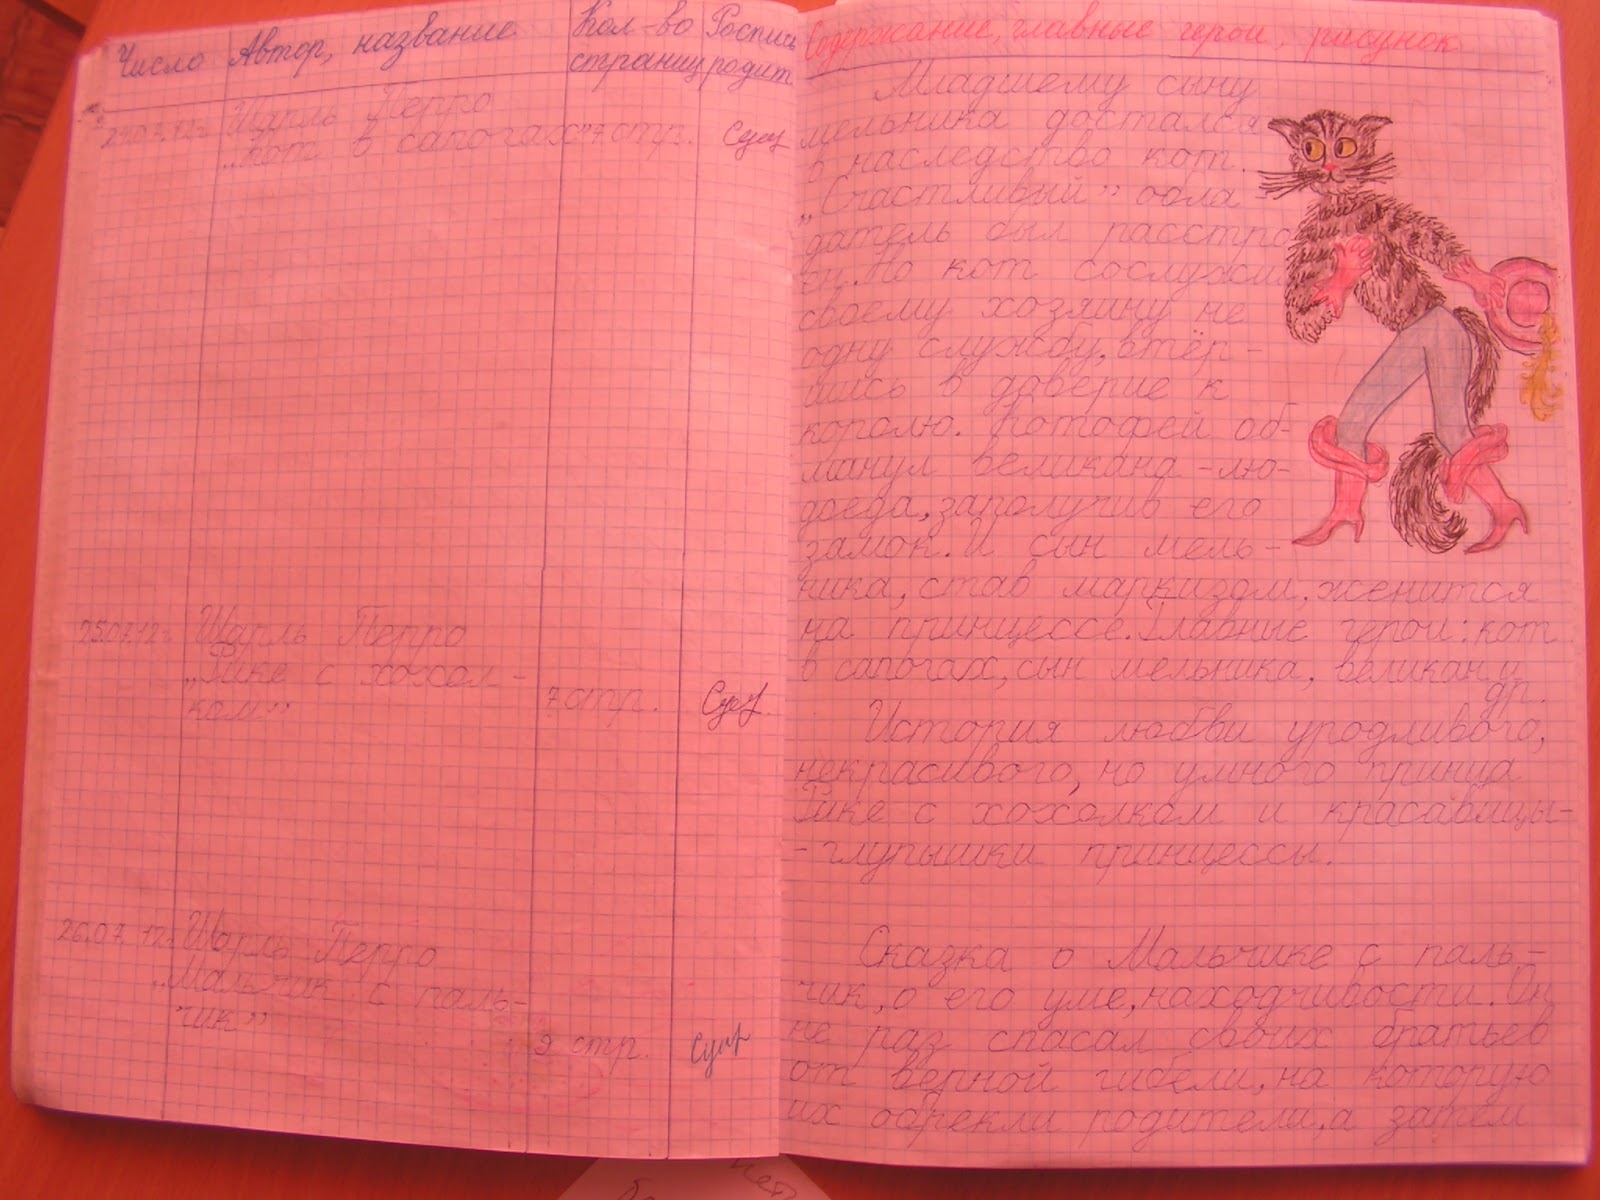 Число
Автор, название
Кол-во
страниц
Роспись
родит
24.07.12г.
Шарль Перро
„Кот в сапогах”
7 стр.
25.07.12г.
Шарль Перро
„Рике с хохол-
ком”
7 стр.
26.07.12г.
Шарль Перро
„Мальчик с паль-
чик”
9 стр.
Содержание, главные герои, рисунок
Младшему сыну
мельника достался
в наследство кот.
„Счастливый” обла-
датель был расстро
ен. Но кот сослужи
своему хозяину не
одну службу, втёр-
шись в доверие к
королю. Котофей об-
манул великана-лю-
доеда, заполучив его
замок. И сын мель-
ника, став маркизом, женится
на принцессе. Главные герои: кот
в сапогах, сын мельника, великан и
др.
История любви уродливого,
некрасивого, но умного принца
Рике с хохолком и красавицы-
-глупышки принцессы.
Сказка о Мальчике с паль-
чик, о его уме, находчивости. Он
не раз спасал своих братьев
от верной гибели, на которую
их обрекли родители, а затем